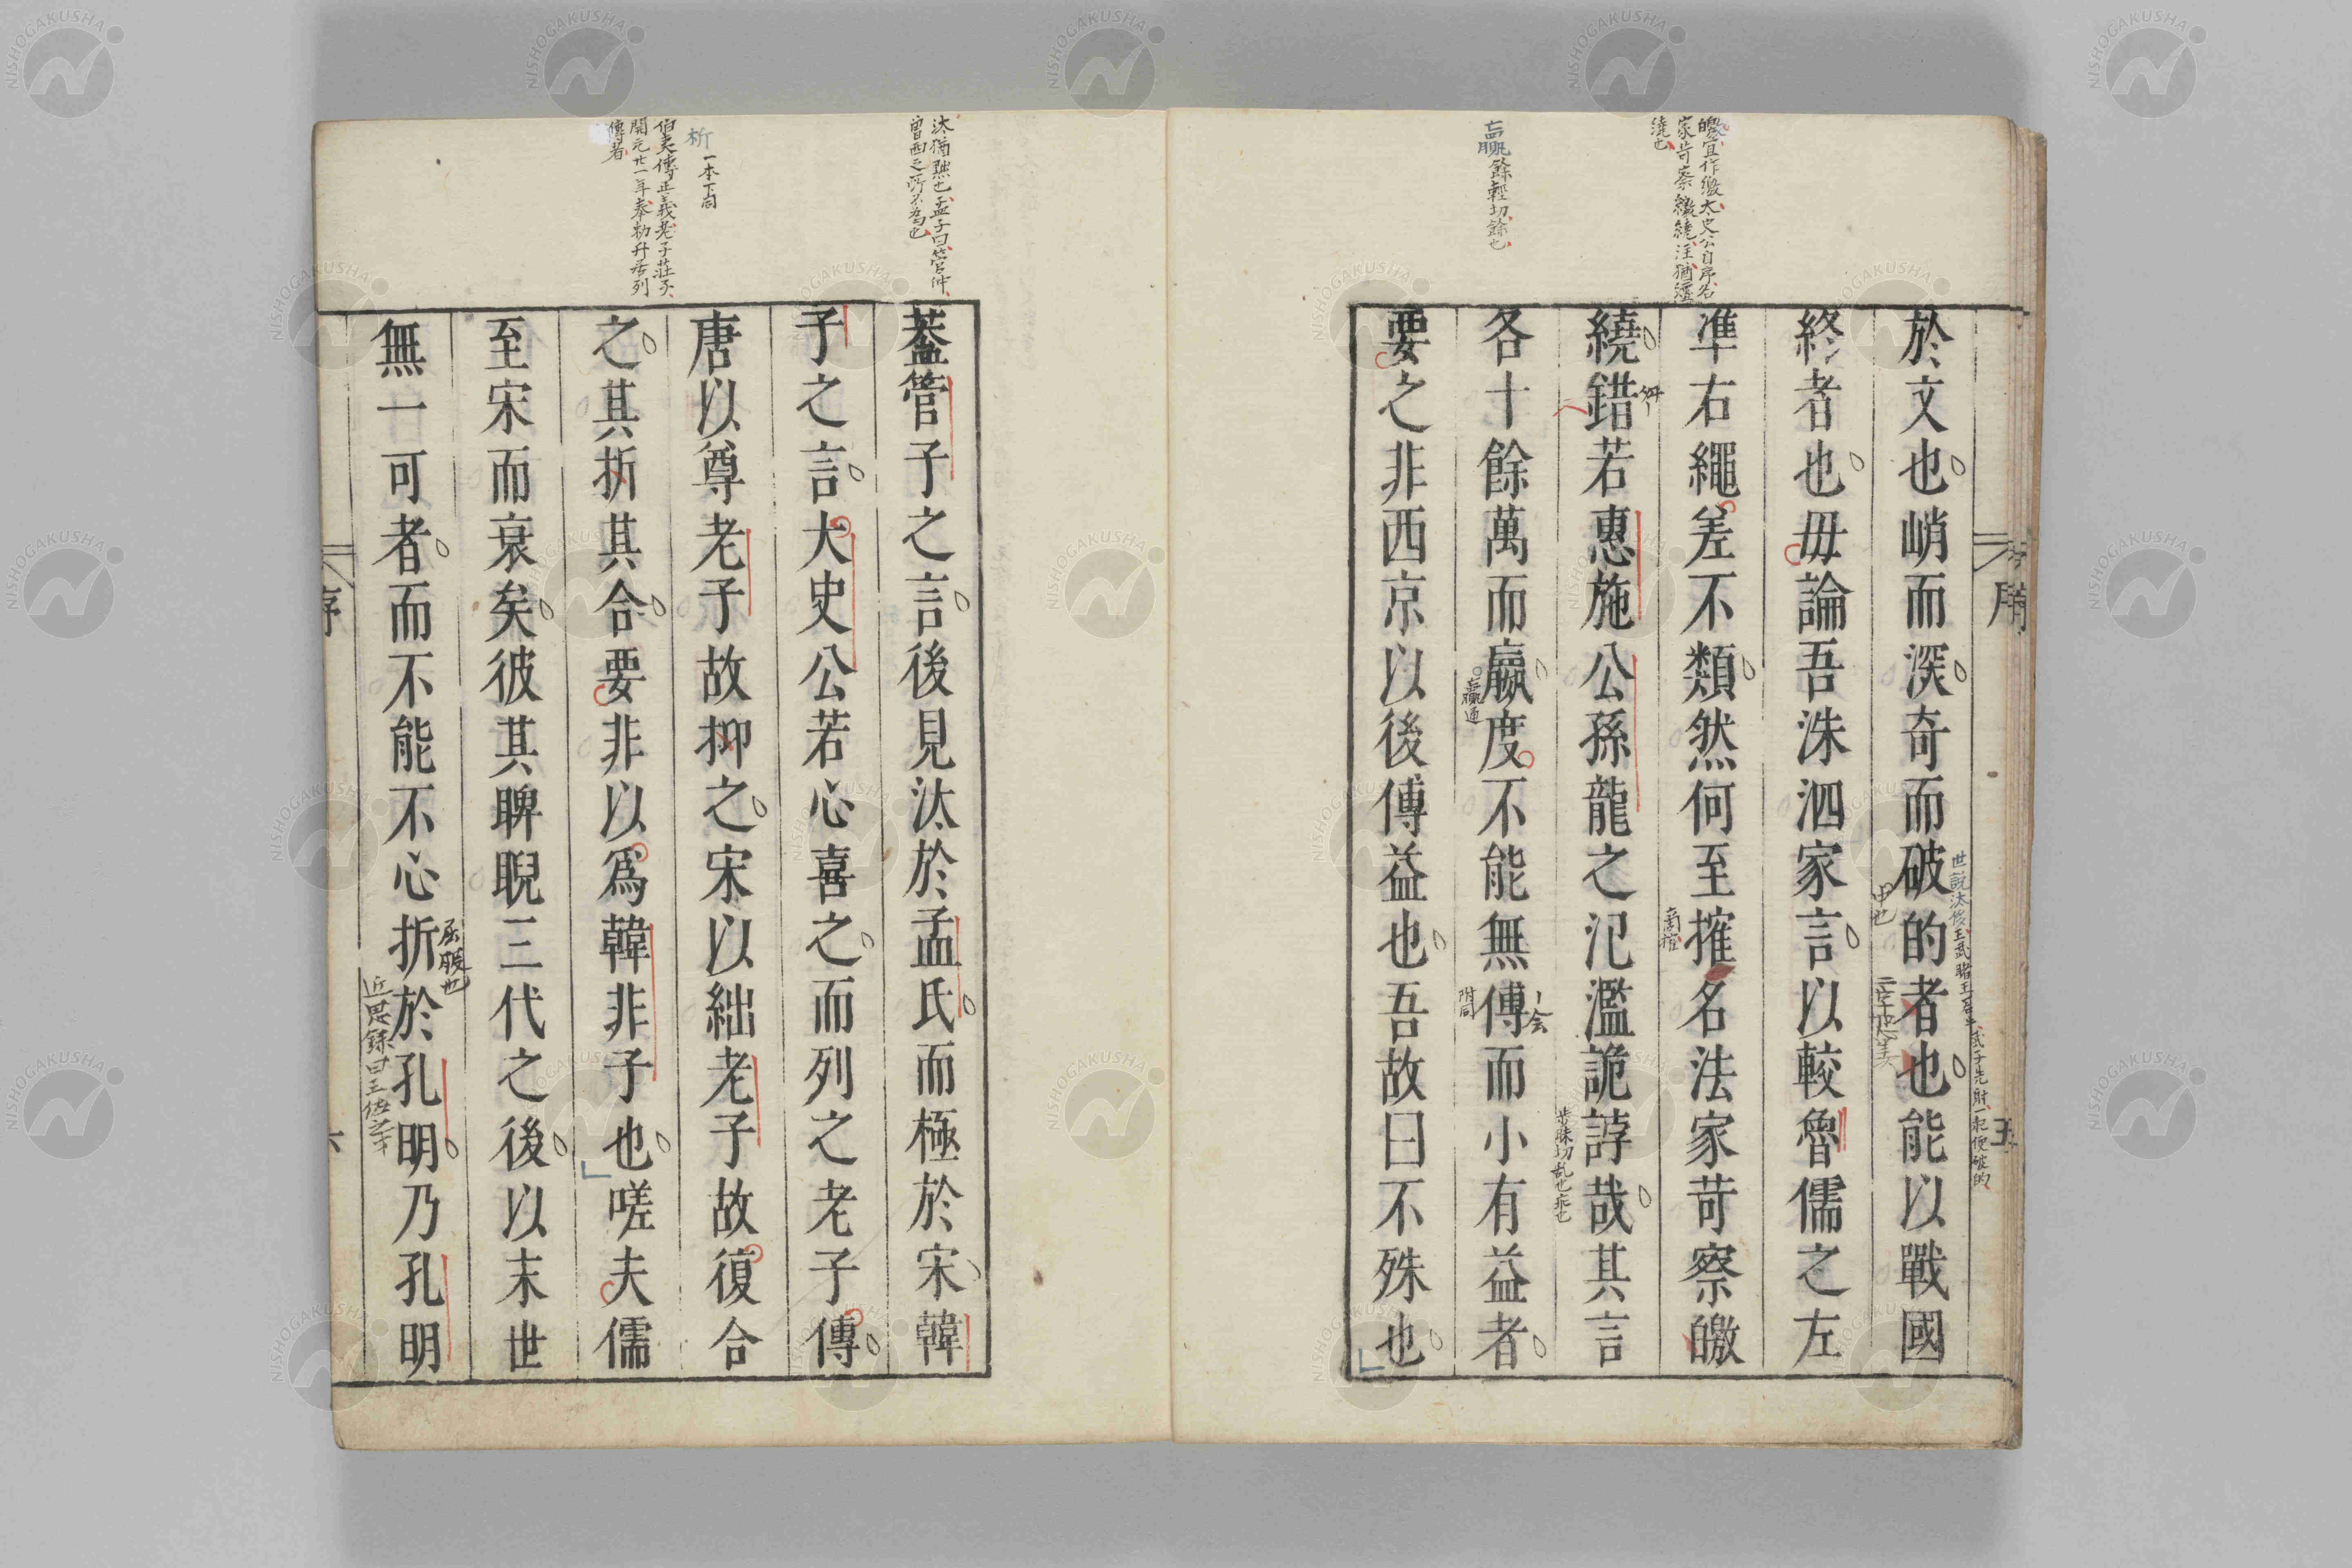 於文也峭而深奇而破的者也能以戰國
終者也毋論吾洙泗家言以較魯儒之左
準右繩差不類然何至摧名法家苛察皦
繞錯若惠施公孫龍之氾濫詭誖哉其言
各十餘萬而嬴度不能無傅而小有益者
要之非西京以後傅益也吾故曰不殊也
蓋管子之言後見汰於孟氏而極於宋韓
子之言大史公若心喜之而列之老子傳
唐以尊老子故抑之宋以絀老子故復合
之其折其合要非以爲韓非子也嗟夫儒
至宋而衰矣彼其睥睨三代之後以末世
無一可者而不能不心折於孔明乃孔明
皦宜作繳太史公自序名
家苛察繳繞注猶纏
繞也
贏餘輕切餘也
汰猶黜也孟子曰管仲
曾西之所不為也
析一本下同
伯夷傳正義老子莊子
開元廿一年奉勅升居列
傳者
屈服也
近思錄曰王佐之才
中也
附同
贏通
序
五
六
NISHOGAKUSHA